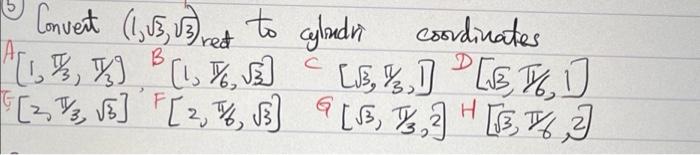 5 Convert (1,√3,√3)rect to cylindri coordinates
A [1, π/3, π/3] B [1, π/6, √3] C [√3, π/3, 1] D [√3, π/6, 1]
E [2, π/3, √3] F [2, π/6, √3] G [√3, π/3, 2] H [√3, π/6, 2]